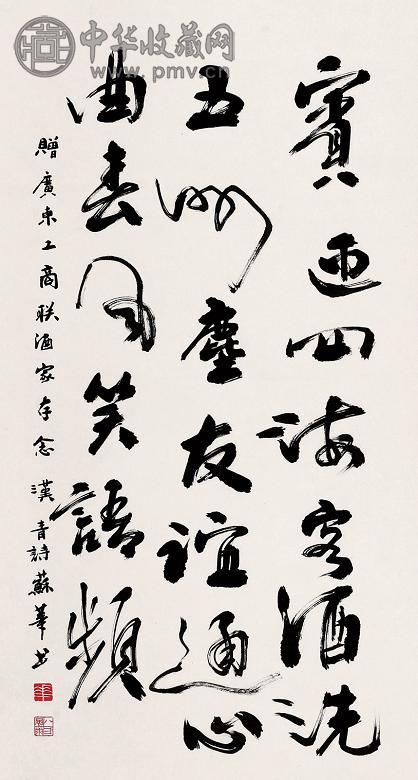 中华收藏网
www.pmv.cn
賓迎四海客酒洗
五洲塵友誼通心
曲春风笑語頻
贈廣東工商联酒家存念 漢青詩蘇華书